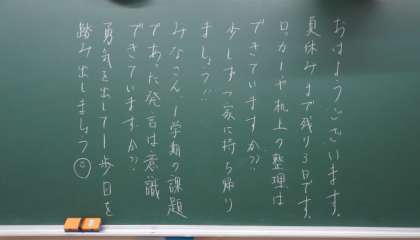 おはようございます。
夏休みまで残り3日です。
ロッカーや机上の整理は
できていますか??
少しずつ家に持ち帰り
ましょう!!
みなさん、1学期の課題
であった発言は意識
できていますか??
勇気を出して1歩目を
踏み出しましょう